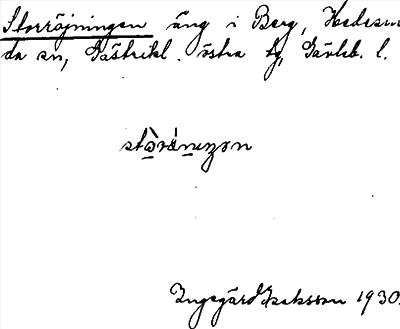 Storröjningen äng i Berg, Hedesun-
da sn, Gästrikl. östra tg, Gävleb. l.
Ingegärd Isaksson 1930.